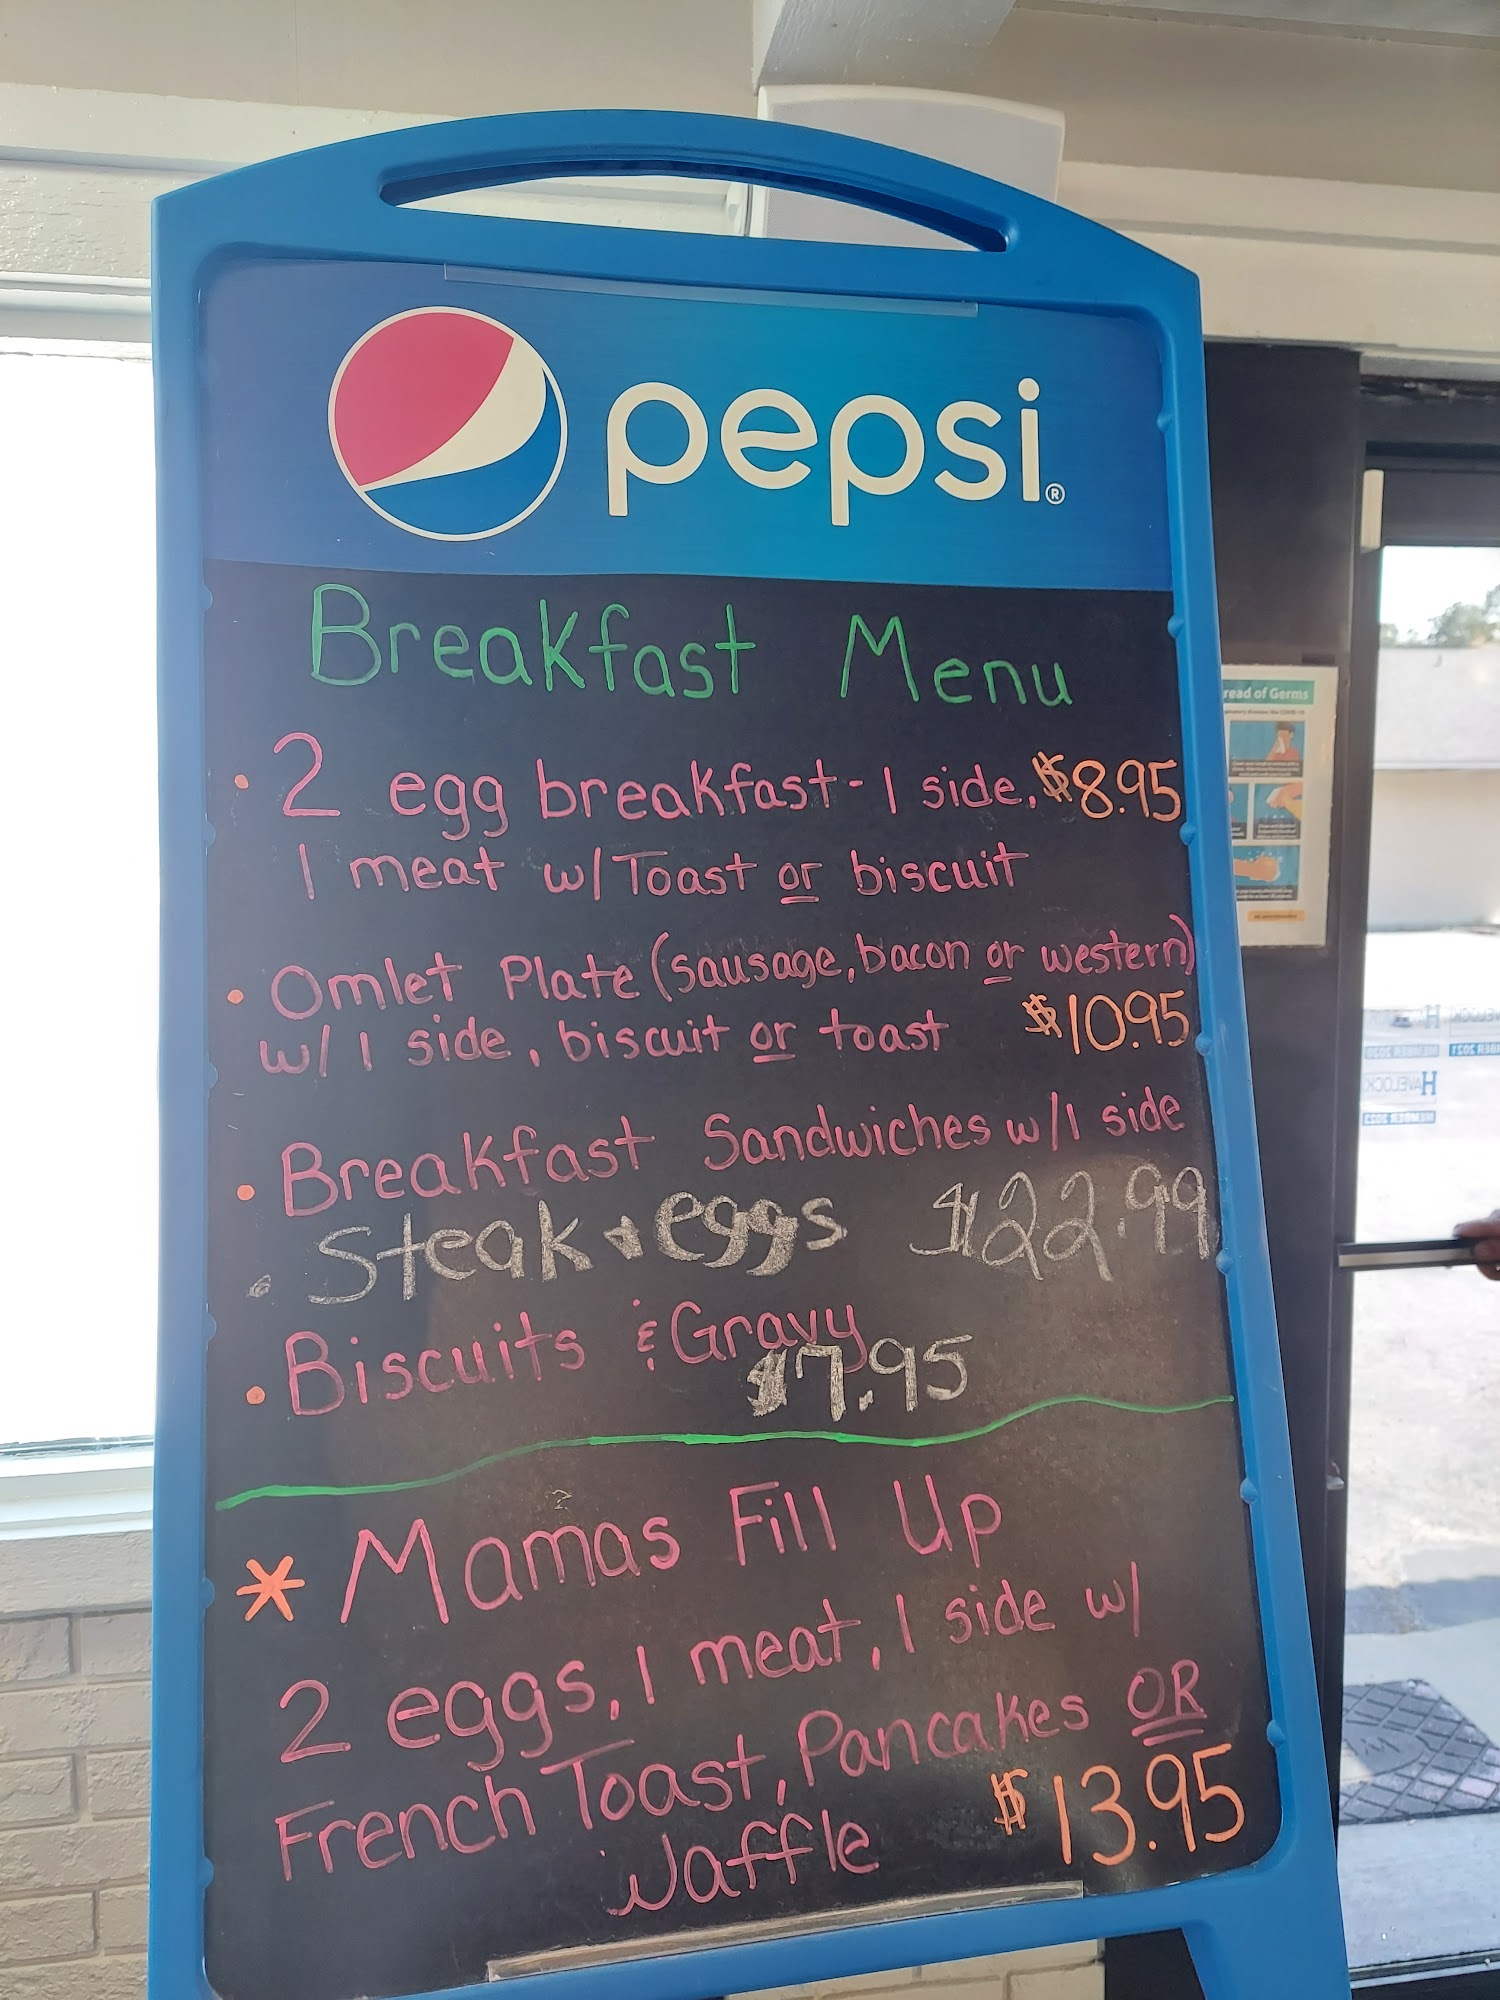 pepsi®
Breakfast Menu
• 2 egg breakfast - 1 side, $8.95
1 meat w/ Toast or biscuit
• Omlet Plate (sausage, bacon or western)
w/ 1 side, biscuit or toast $10.95
• Breakfast Sandwiches w/ 1 side
• Steak & eggs $22.99
• Biscuits & Gravy
$7.95
* Mamas Fill Up
2 eggs, 1 meat, 1 side w/
French Toast, Pancakes OR
Waffle $13.95
read of Germs
HAVELOCK
MEMBER 2021
HAVELOCK
MEMBER 2023